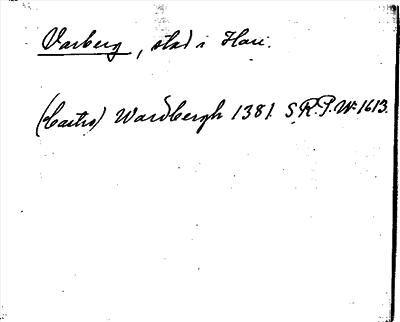 Varberg, stad i Hall.
(Castro) Wardbergh 1381. S.R.P. Nr 1613.